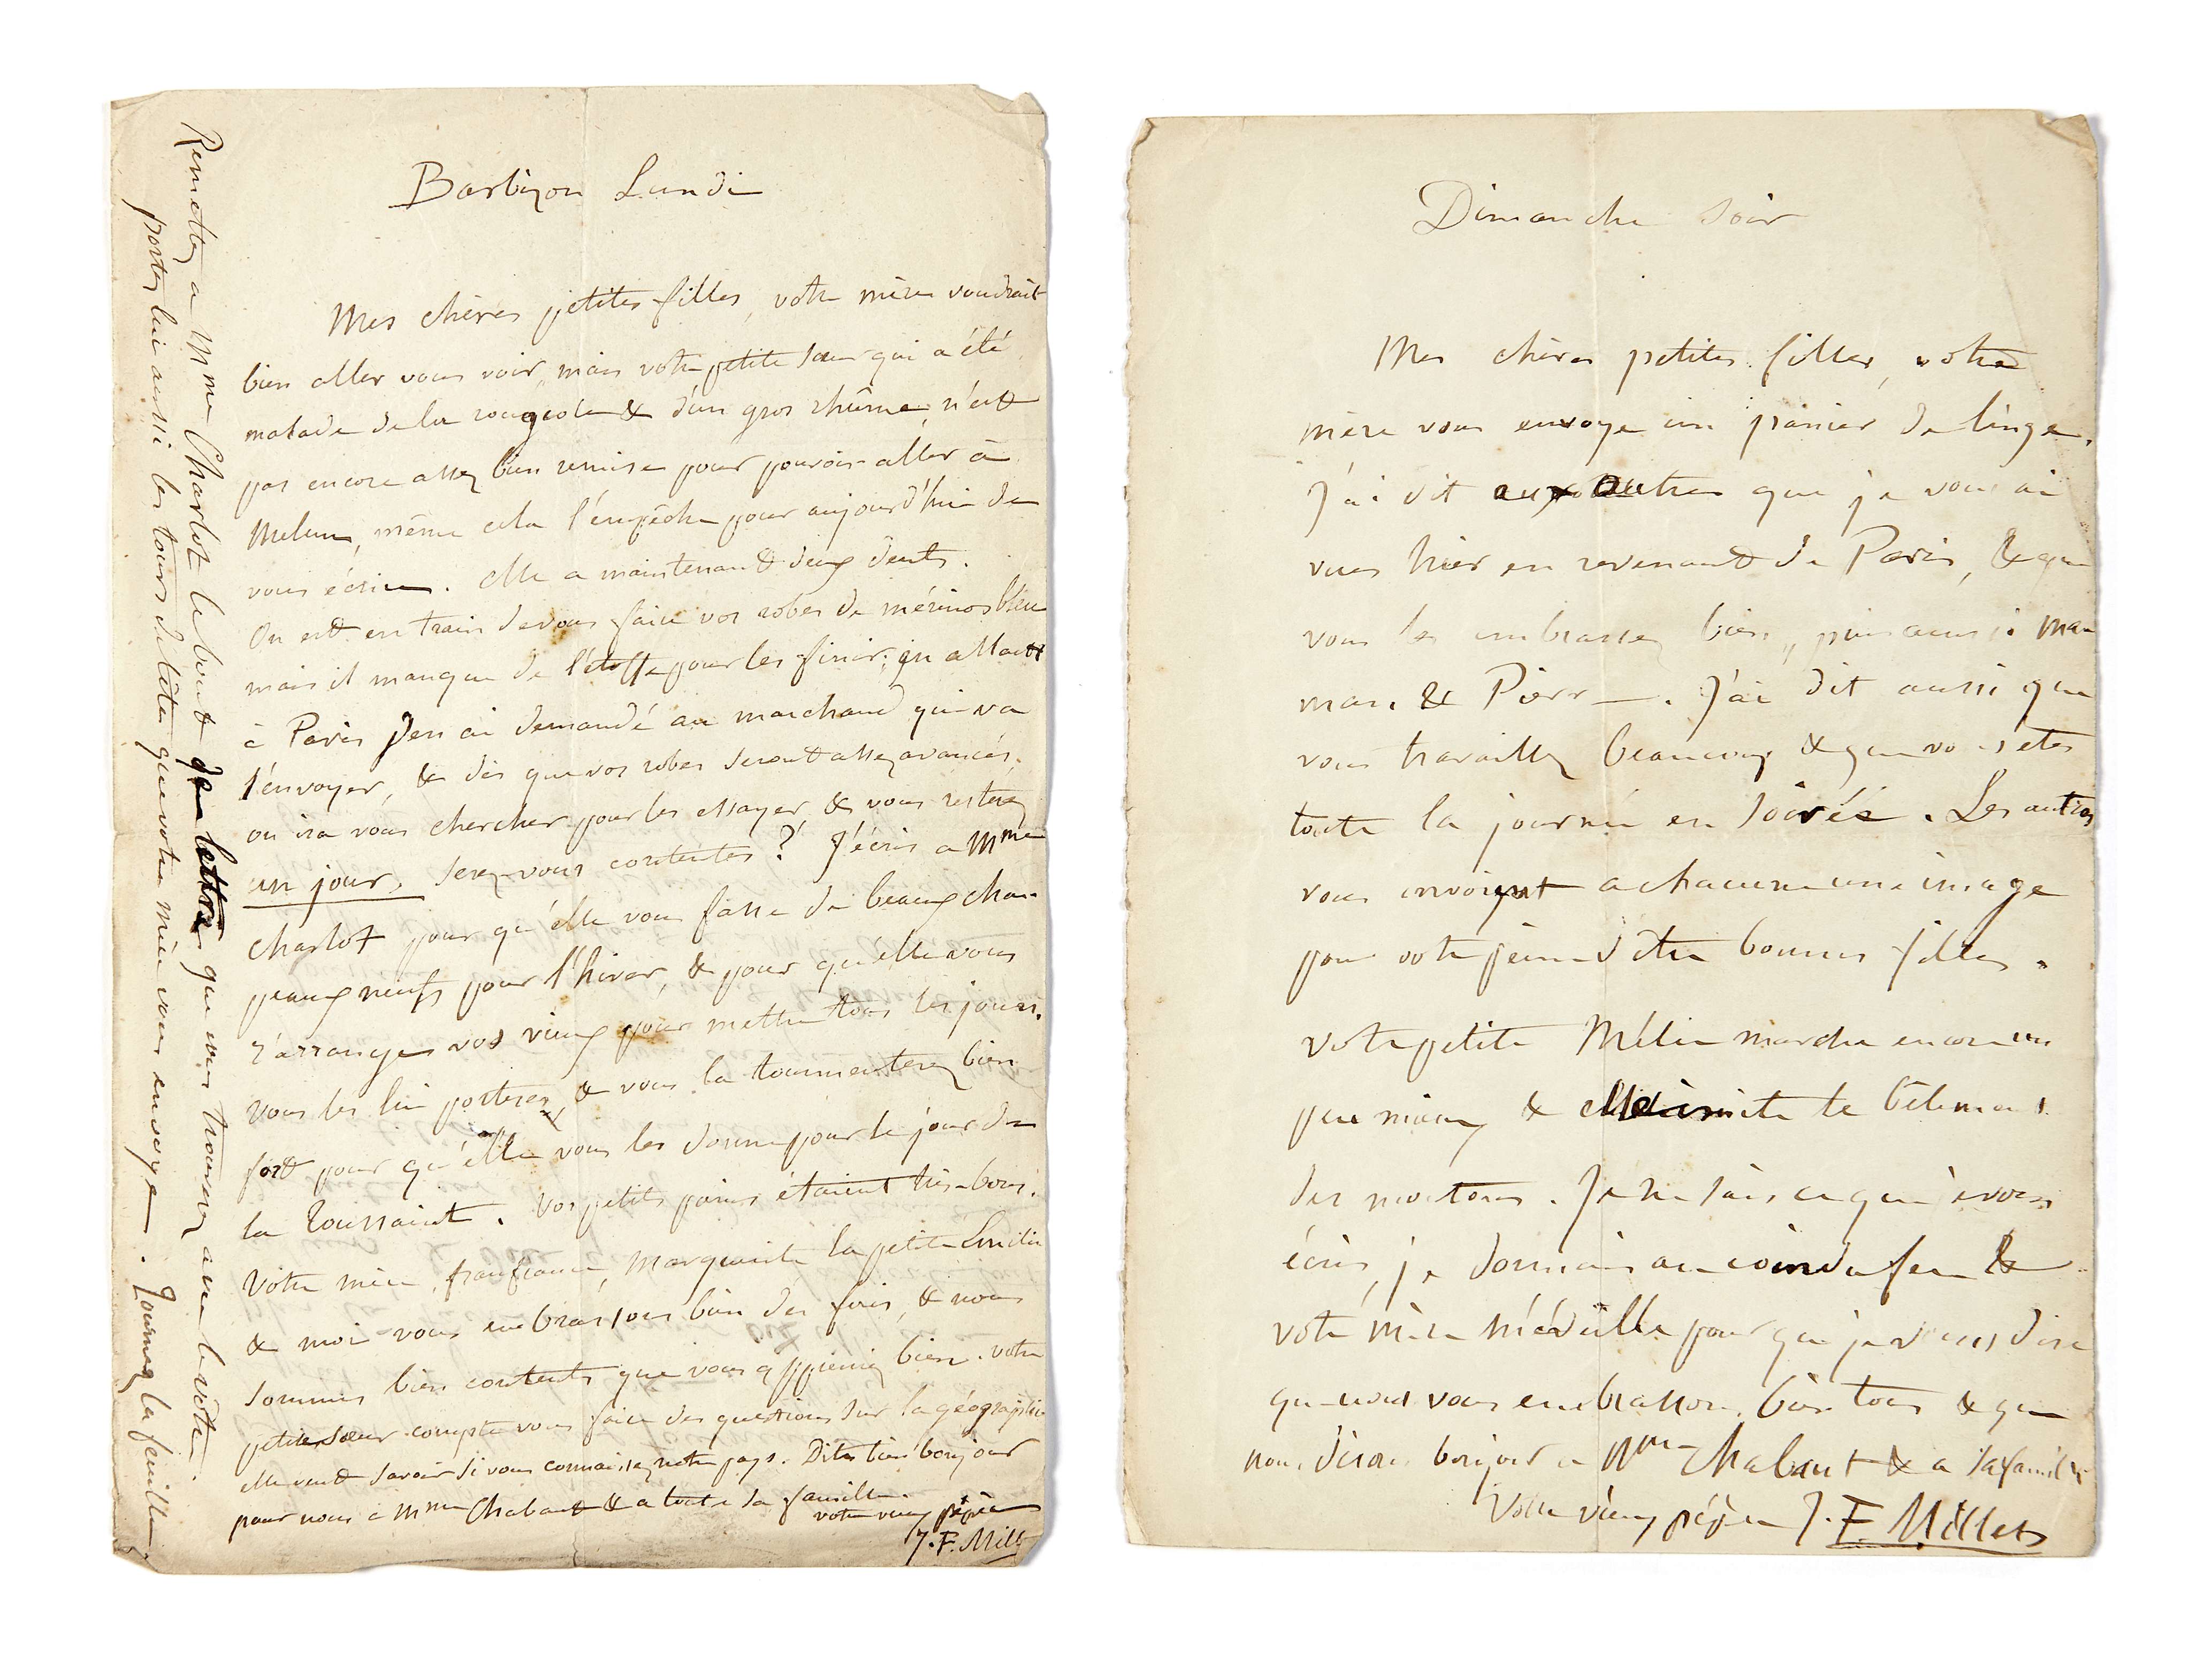 Barbizon Lundi
Mes chères petites filles, votre mère voudrait
bien aller vous voir, mais votre petite sœur qui a été
malade de la rougeole & d'un gros rhûme, n'est
pas encore assez bien remise pour pouvoir aller à
Melun, même cela l'empêche pour aujourd'hui de
vous écrire. Elle a maintenant deux dents.
On est en train de vous faire vos robes de mérinos bleu
mais il manque de l'étoffe pour les finir; en allant
à Paris j'en ai demandé au marchand qui va
l'envoyer, & dès que vos robes seront assez avancées,
on ira vous chercher pour les essayer & vous resterez
un jour. Serez-vous contentes? J'écris a Mme
Charlot pour qu'elle vous fasse de beaux cha-
peaux neufs pour l'hiver, & pour qu'elle vous
r'arrange vos vieux pour mettre tous les jours.
Vous les lui porterez & vous la tourmenterez bien
fort pour qu'elle vous les donne pour le jour de
la Toussaint. Vos petits pains étaient très-bons.
Votre mère, Marguerite la petite Emélie
& moi vous embrassons bien des fois, & nous
sommes bien contents que vous appreniez bien. Votre
petite sœur compte vous faire des questions sur la géographie
elle veut savoir si vous connaissez notre pays. Dites bien bonjour
pour nous à Mme Chabaut & a toute sa famille.
votre vieux pépère
J. F. Mill
Remettez a Mme Charlot le bout de lettre que vous trouverez avec la vôtre.
portez lui aussi les tours de tête que votre mère vous envoye. Tournez la feuille.
Dimanche soir
Mes chères petites filles, votre
mère vous envoye un panier de linge.
J'ai dit aux autres que je vous ai
vues hier en revenant de Paris, & que
vous les embrassez bien, puis aussi ma
man & Pierr. J'ai dit aussi que
vous travaillez beaucoup & que vous êtes
toute la journée en soirée. Les autres
vous envoient a chacune une image
pour votre peine d'être bonnes filles.
votre petite Mélie marche encore un
peu mieux & elle imite le bêlement
des moutons. Je ne sais ce que je vous
écris, je dormais au coin du feu &
votre mère m'éveille pour que je vous dise
que nous vous embrassons bien tous & que
nous disons bonjour a Mme Chabaut & a sa famille
Votre vieux pépère J. F. Millet